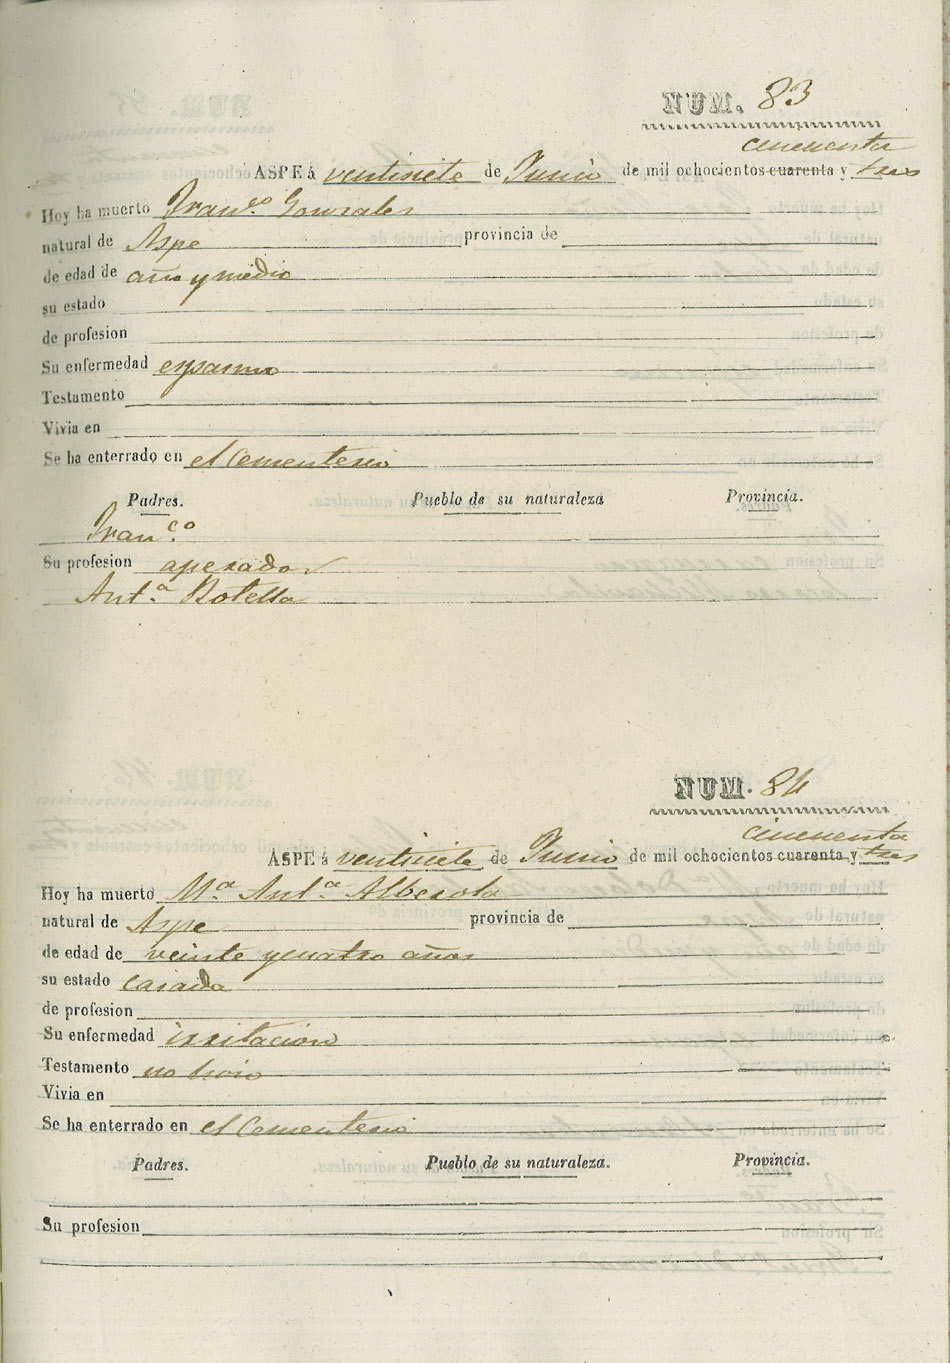 NUM. 83
cincuenta
ASPE á ventisiete de Junio de mil ochocientos cuarenta y tres
Hoy ha muerto Fran.co Gonzales
natural de Aspe provincia de
de edad de año y medio
su estado
de profesion
Su enfermedad espasmo
Testamento
Vivia en
Se ha enterrado en el Cementerio
Padres. Pueblo de su naturaleza Provincia.
Fran.co
Su profesion aperador
Ant.a Botella
NUM. 84
cincuenta
ASPE á ventisiete de Junio de mil ochocientos cuarenta y tres
Hoy ha muerto M.a Ant.a Alberola
natural de Aspe provincia de
de edad de veinte y cuatro años
su estado casada
de profesion
Su enfermedad irritacion
Testamento no hizo
Vivia en
Se ha enterrado en el Cementerio
Padres. Pueblo de su naturaleza. Provincia.
Su profesion